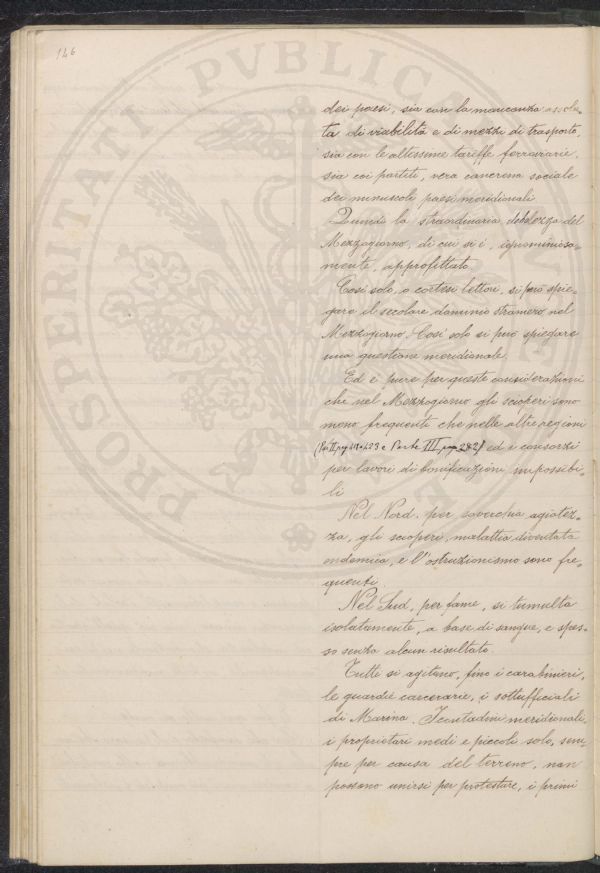 146
PROSPERITATI PVBLICAE
dei paesi, sia con la mancanza assolu-
ta di viabilità e di mezzi di trasporto,
sia con le altissime tariffe ferroviarie,
sia coi partiti, vera cancrena sociale
dei minuscoli paesi meridionali.
Quindi la straordinaria debolezza del
Mezzogiorno, di cui si è, ignominiosa-
mente, approfittato.
Così solo, o cortesi lettori, si può spie-
gare il secolare dominio straniero nel
Mezzogiorno. Così solo si può spiegare
una questione meridionale.
Ed è pure per queste considerazioni
che nel Mezzogiorno gli scioperi sono
meno frequenti che nelle altre regioni
(Parte II pag. 423 e Parte III pag. 282) ed i consorzi
per lavori di bonificazioni impossibi-
li.
Nel Nord, per soverchia agiatez-
za, gli scioperi, malattia diventata
endemica, e l'ostruzionismo sono fre-
quenti.
Nel Sud, per fame, si tumulta
isolatamente, a base di sangue, e spes-
so senza alcun risultato.
Tutti si agitano, fino i carabinieri,
le guardie carcerarie, i sottufficiali
di Marina. I contadini meridionali,
i proprietari medi e piccoli solo, sem-
pre per causa del terreno, non
possono unirsi per protestare, i primi